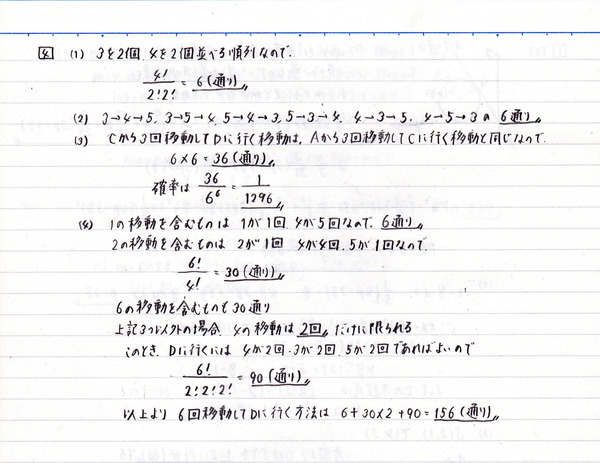 4 (1) 3を2個, 4を2個並べる順列なので.
4!/2!2! = 6(通り)
(2) 3→4→5, 3→5→4, 5→4→3, 5→3→4, 4→3→5, 4→5→3 の 6通り
(3) Cから3回移動してDに行く移動は, Aから3回移動してCに行く移動と同じなので.
6×6=36(通り)
確率は 36/6^6 = 1/1296
(4) 1の移動を含むものは 1が1回, 4が5回なので, 6通り
2の移動を含むものは 2が1回 4が4回, 5が1回なので.
6!/4! = 30(通り)
6の移動を含むものも30通り
上記3つ以外の場合, 4の移動は 2回 だけに限られる
このとき, Dに行くには 4が2回・3が2回, 5が2回であればよいので
6!/2!2!2! = 90(通り)
以上より 6回移動してDに行く方法は 6+30×2+90=156(通り)